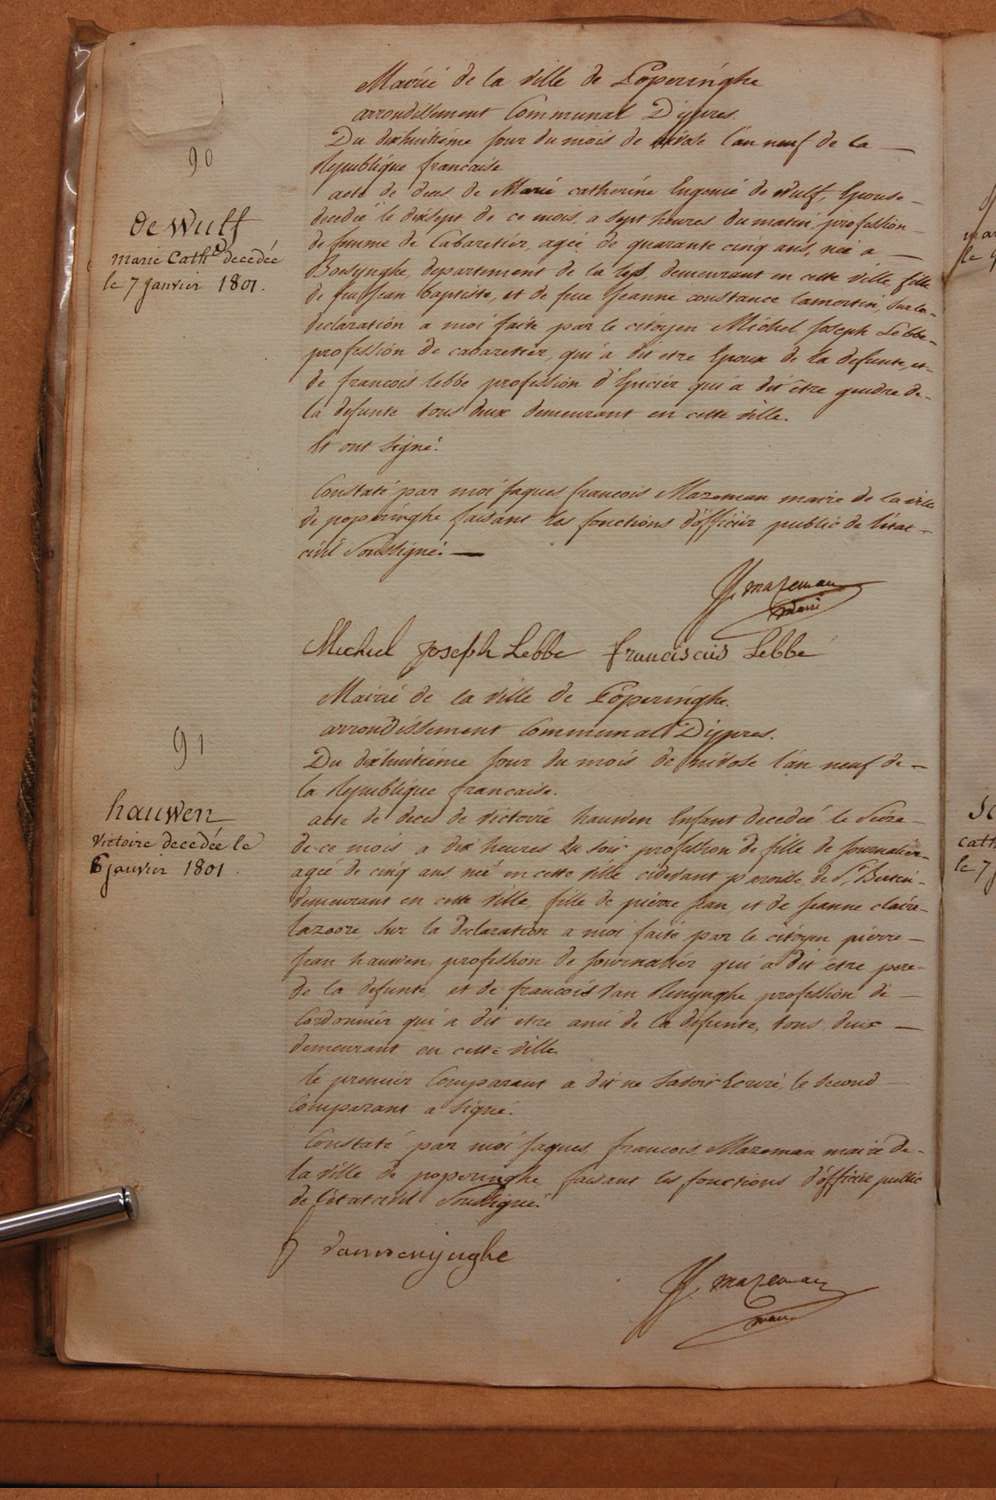 Mairié de la ville de Poperinghe
arrondissement Communal D'ypres.
90
Du dixhuitième jour du mois de nivose l'an neuf de la —
République francaise
acte de deces de Marie catherine Eugenie de Wulf, Epouse -
decedée le dixsept de ce mois a sept heures du matin, profession -
de femme de Cabaretier, agée de quarante cinq ans, née a —
Boesynghe, departement de la Lys, demeurant en cette ville, fille
de feu Jean baptiste, et de feue Jeanne constance Lamertin, Sur la -
declaration a moi faite par le citoyen Michel Joseph Lebbe -
profession de cabaretier, qui a dit etre Epoux de la defunte, et -
de francois lebbe profession d'Epicier qui a dit être gendre de -
la defunte tous deux demeurant en cette ville.
Et ont signé.
de Wulf
marie Cath.e decedée
le 7 janvier 1801.
Constaté par moi Jaques francois Mazeman maire de la ville
de poperinghe faisant les fonctions d'officier public de l'état -
civil Soussigné. —
JF. mazeman
maire
Michiel Joseph Lebbe franciscus Lebbe
Mairié de la ville de Poperinghe.
arrondissement Communal D'ypres.
91
Du dixhuitième jour du mois de nivose l'an neuf de -
la République francaise.
acte de deces de Victoire hauwen Enfant decedée le Seize -
de ce mois a dix heures du soir profession de fille de Journalier -
agée de cinq ans née en cette ville cidevant paroisse de St. Bertin -
demeurant en cette ville, fille de pierre Jean, et de Jeanne claire -
Lazoore, Sur la declaration a moi faite par le citoyen pierre -
Jean hauwen, profession de Journalier qui a dit être pere -
de la defunte, et de francois Van Renynghe profession de —
Cordonnier qui a dit etre ami de la defunte, tous deux —
demeurant en cette ville.
le premier Comparant a dit ne Savoir Ecrire, le Second -
Comparant a signé.
hauwen
Victoire decedée le
6 janvier 1801.
Constaté par moi Jaques francois Mazeman maire de -
la ville de poperinghe faisant les fonctions d'officier public
de l'état civil Soussigné.
f vanrenijnghe
JF. mazeman
maire